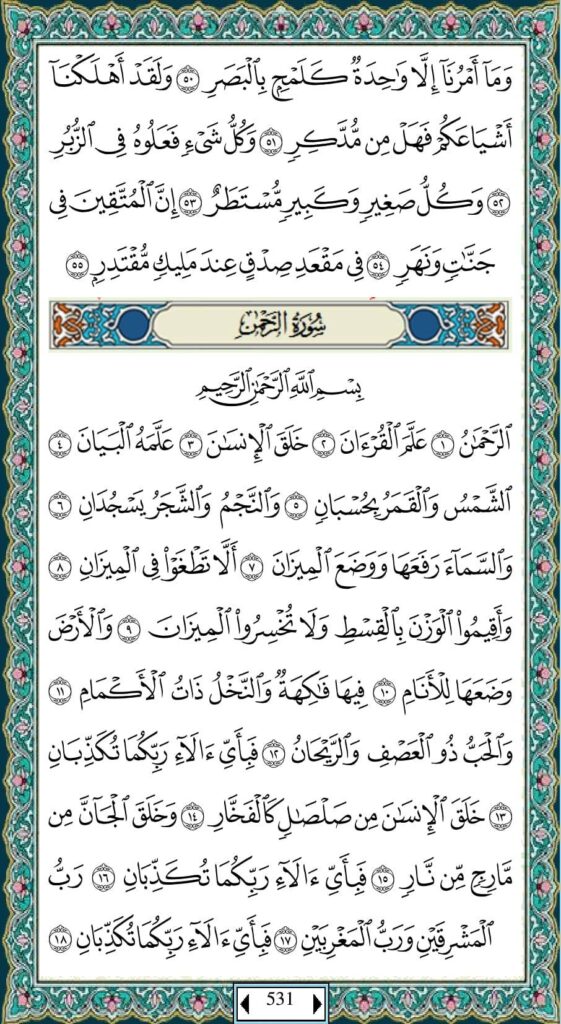 وَمَآ أَمۡرُنَآ إِلَّا وَٰحِدَةٌ كَلَمۡحِۭ بِٱلۡبَصَرِ ٥٠ وَلَقَدۡ أَهۡلَكۡنَآ
أَشۡيَاعَكُمۡ فَهَلۡ مِن مُّدَّكِرٖ ٥١ وَكُلُّ شَيۡءٖ فَعَلُوهُ فِي ٱلزُّبُرِ
٥٢ وَكُلُّ صَغِيرٖ وَكَبِيرٖ مُّسۡتَطَرٌ ٥٣ إِنَّ ٱلۡمُتَّقِينَ فِي
جَنَّٰتٖ وَنَهَرٖ ٥٤ فِي مَقۡعَدِ صِدۡقٍ عِندَ مَلِيكٖ مُّقۡتَدِرِۭ ٥٥
سُورَةُ الرَّحۡمَٰن
بِسۡمِ ٱللَّهِ ٱلرَّحۡمَٰنِ ٱلرَّحِيمِ
ٱلرَّحۡمَٰنُ ١ عَلَّمَ ٱلۡقُرۡءَانَ ٢ خَلَقَ ٱلۡإِنسَٰنَ ٣ عَلَّمَهُ ٱلۡبَيَانَ ٤
ٱلشَّمۡسُ وَٱلۡقَمَرُ بِحُسۡبَانٖ ٥ وَٱلنَّجۡمُ وَٱلشَّجَرُ يَسۡجُدَانِ ٦
وَٱلسَّمَآءَ رَفَعَهَا وَوَضَعَ ٱلۡمِيزَانَ ٧ أَلَّا تَطۡغَوۡاْ فِي ٱلۡمِيزَانِ ٨
وَأَقِيمُواْ ٱلۡوَزۡنَ بِٱلۡقِسۡطِ وَلَا تُخۡسِرُواْ ٱلۡمِيزَانَ ٩ وَٱلۡأَرۡضَ
وَضَعَهَا لِلۡأَنَامِ ١٠ فِيهَا فَٰكِهَةٞ وَٱلنَّخۡلُ ذَاتُ ٱلۡأَكۡمَامِ ١١
وَٱلۡحَبُّ ذُو ٱلۡعَصۡفِ وَٱلرَّيۡحَانُ ١٢ فَبِأَيِّ ءَالَآءِ رَبِّكُمَا تُكَذِّبَانِ
١٣ خَلَقَ ٱلۡإِنسَٰنَ مِن صَلۡصَٰلٖ كَٱلۡفَخَّارِ ١٤ وَخَلَقَ ٱلۡجَآنَّ مِن
مَّارِجٖ مِّن نَّارٖ ١٥ فَبِأَيِّ ءَالَآءِ رَبِّكُمَا تُكَذِّبَانِ ١٦ رَبُّ
ٱلۡمَشۡرِقَيۡنِ وَرَبُّ ٱلۡمَغۡرِبَيۡنِ ١٧ فَبِأَيِّ ءَالَآءِ رَبِّكُمَا تُكَذِّبَانِ ١٨
531